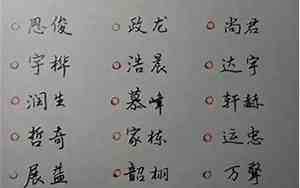 思俊 政龙 尚君
宇桦 浩晨 达宇
润生 慕峰 轩赫
哲奇 家栋 远忠
展益 韶栩 万聲